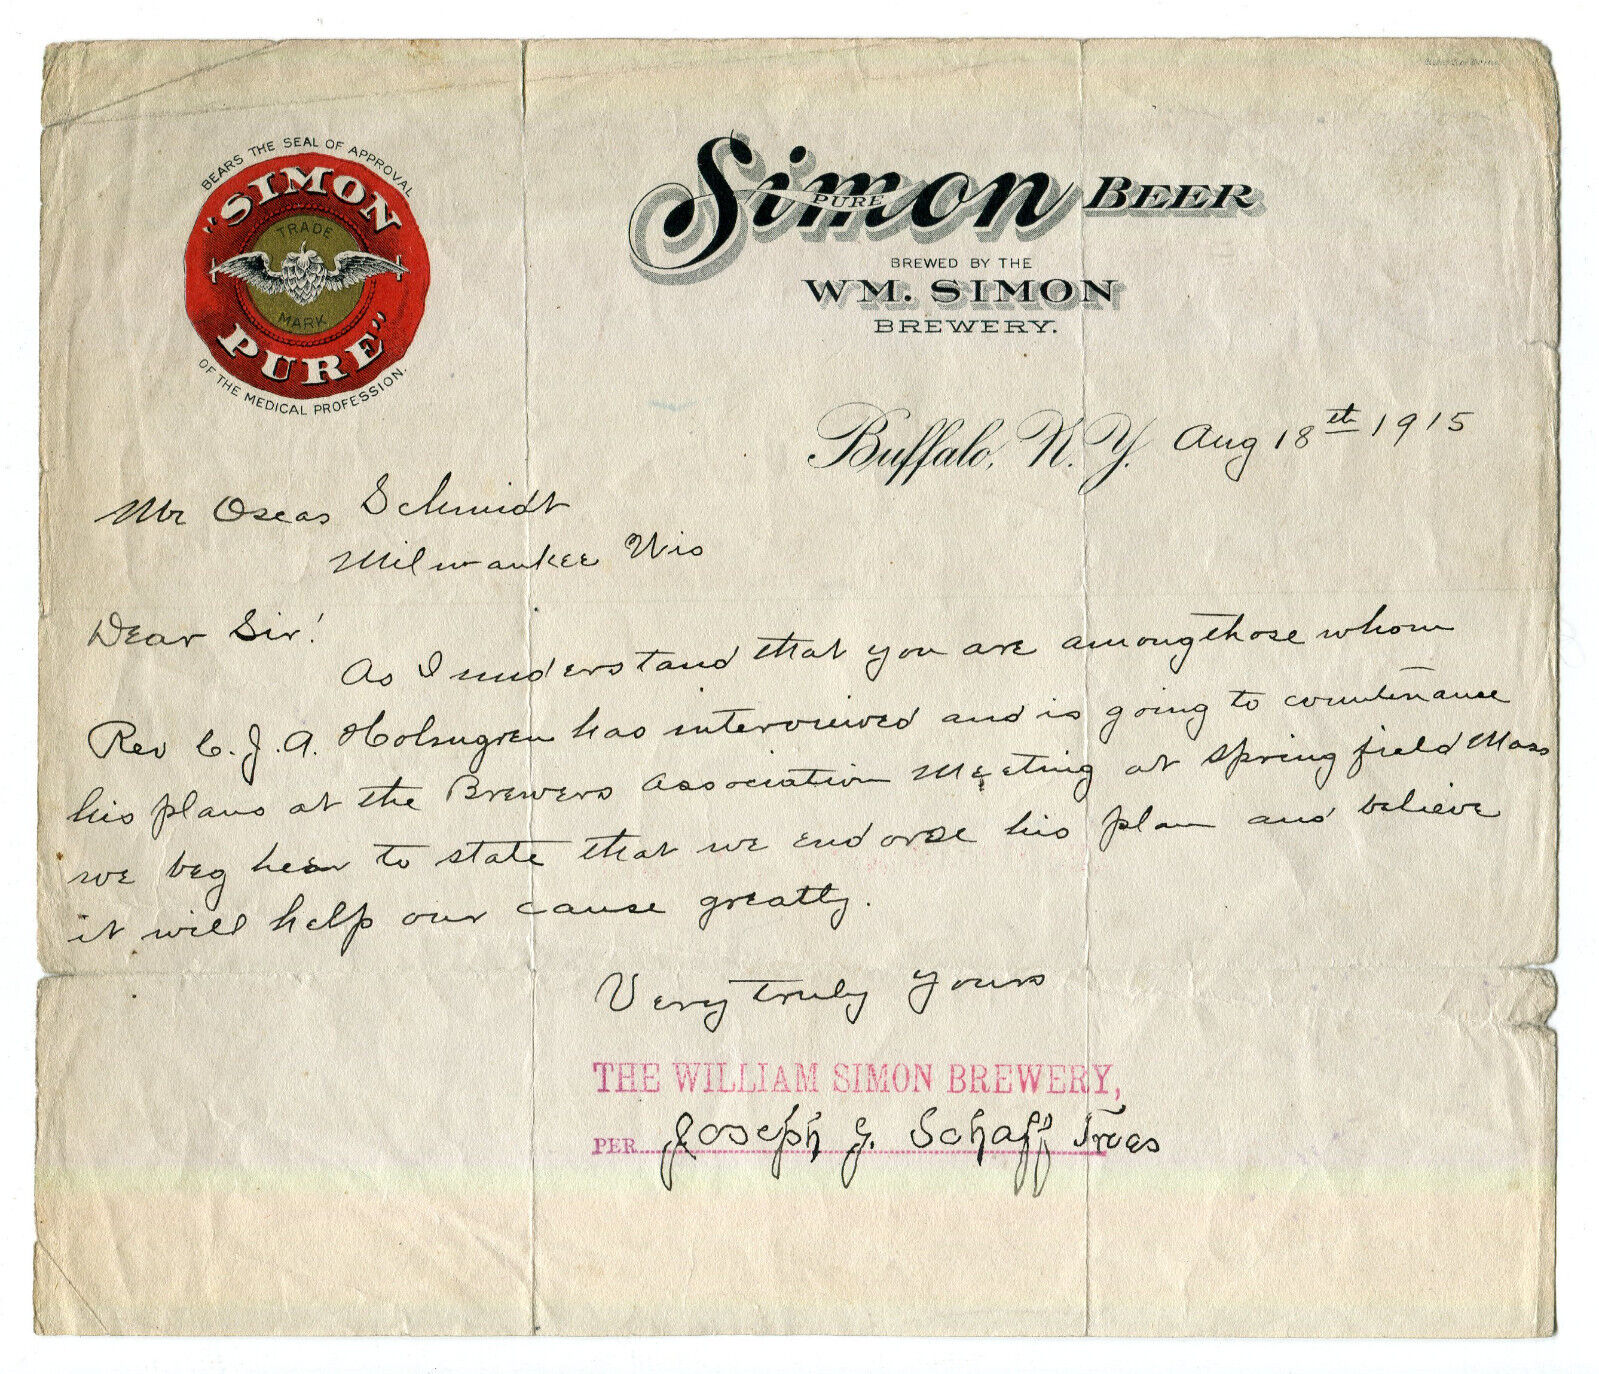 BEARS THE SEAL OF APPROVAL
"SIMON
TRADE
MARK
PURE"
OF THE MEDICAL PROFESSION.
Simon BEER
PURE
BREWED BY THE
WM. SIMON
BREWERY.
Buffalo, N.Y. Aug 18th 1915
Mr Oscas Schmidt
Milwaukee Wis
Dear Sir!
As I understand that you are among those whom
Rev C. J. A. Holmgren has interviewed and is going to countenance
his plans at the Brewers Association Meeting at Springfield Mass
we beg hear to state that we endorse his plan and believe
it will help our cause greatly.
Very truly yours
THE WILLIAM SIMON BREWERY,
PER Joseph G. Schaff Treas